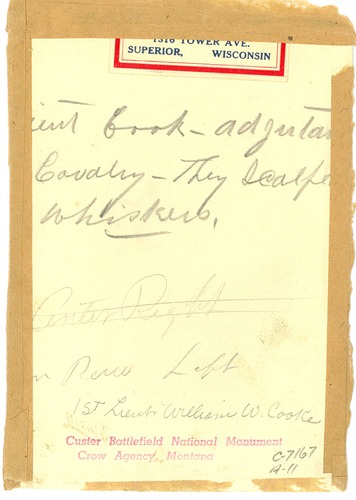 1316 TOWER AVE.
SUPERIOR, WISCONSIN
ieut Cook - adjutan
Cavalry - They Scalpe
whiskers.
Center Right
n Reno Left
1st Lieut. William W. Cooke
Custer Battlefield National Monument
Crow Agency, Montana
C-7167
A-11